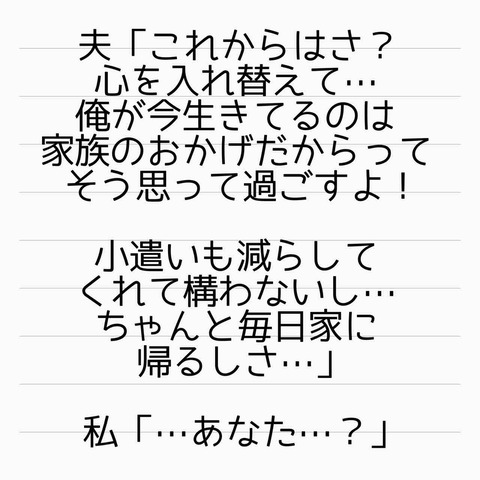 夫「これからはさ？
心を入れ替えて…
俺が今生きてるのは
家族のおかげだからって
そう思って過ごすよ！
小遣いも減らして
くれて構わないし…
ちゃんと毎日家に
帰るしさ…」
私「…あなた…？」